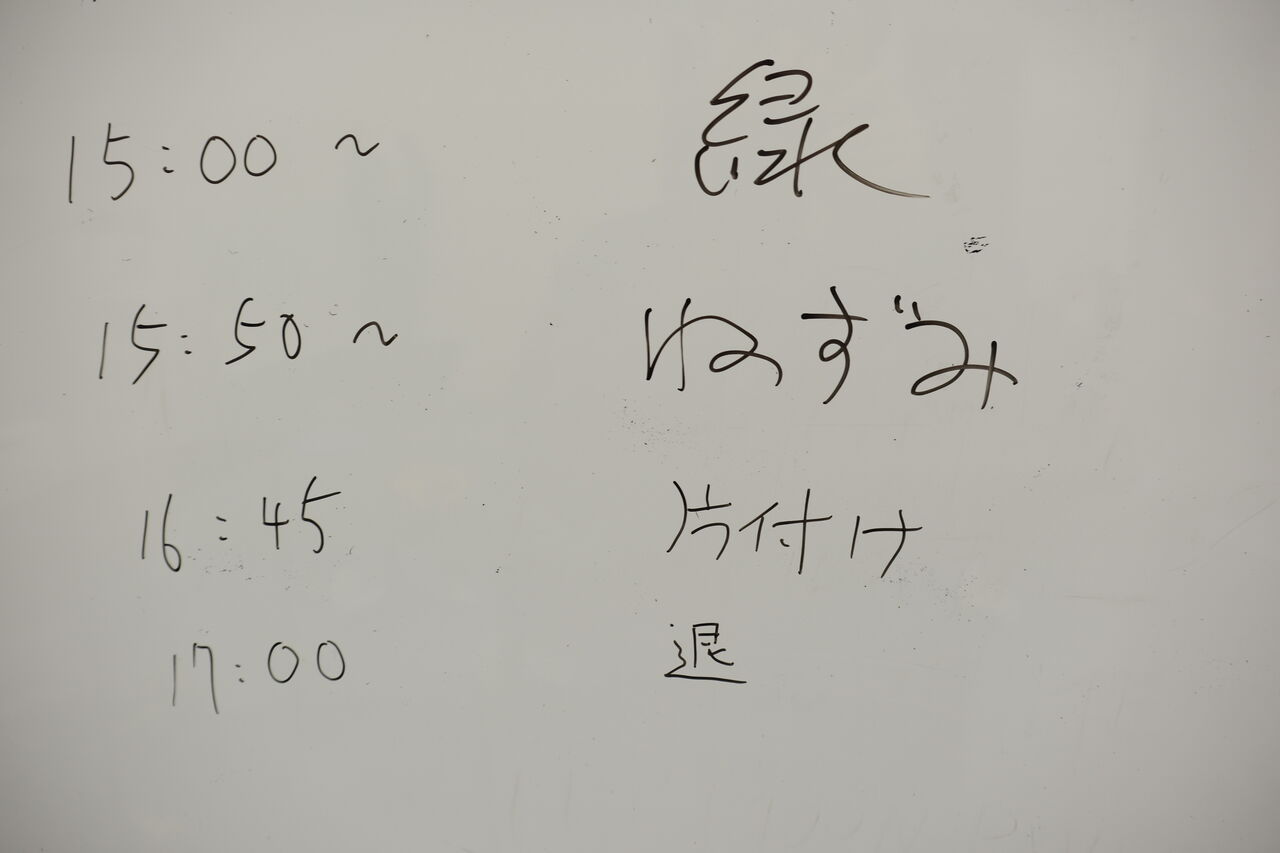 15:00 ~ 緑
15:50 ~ ねずみ
16:45 片付け
17:00 退